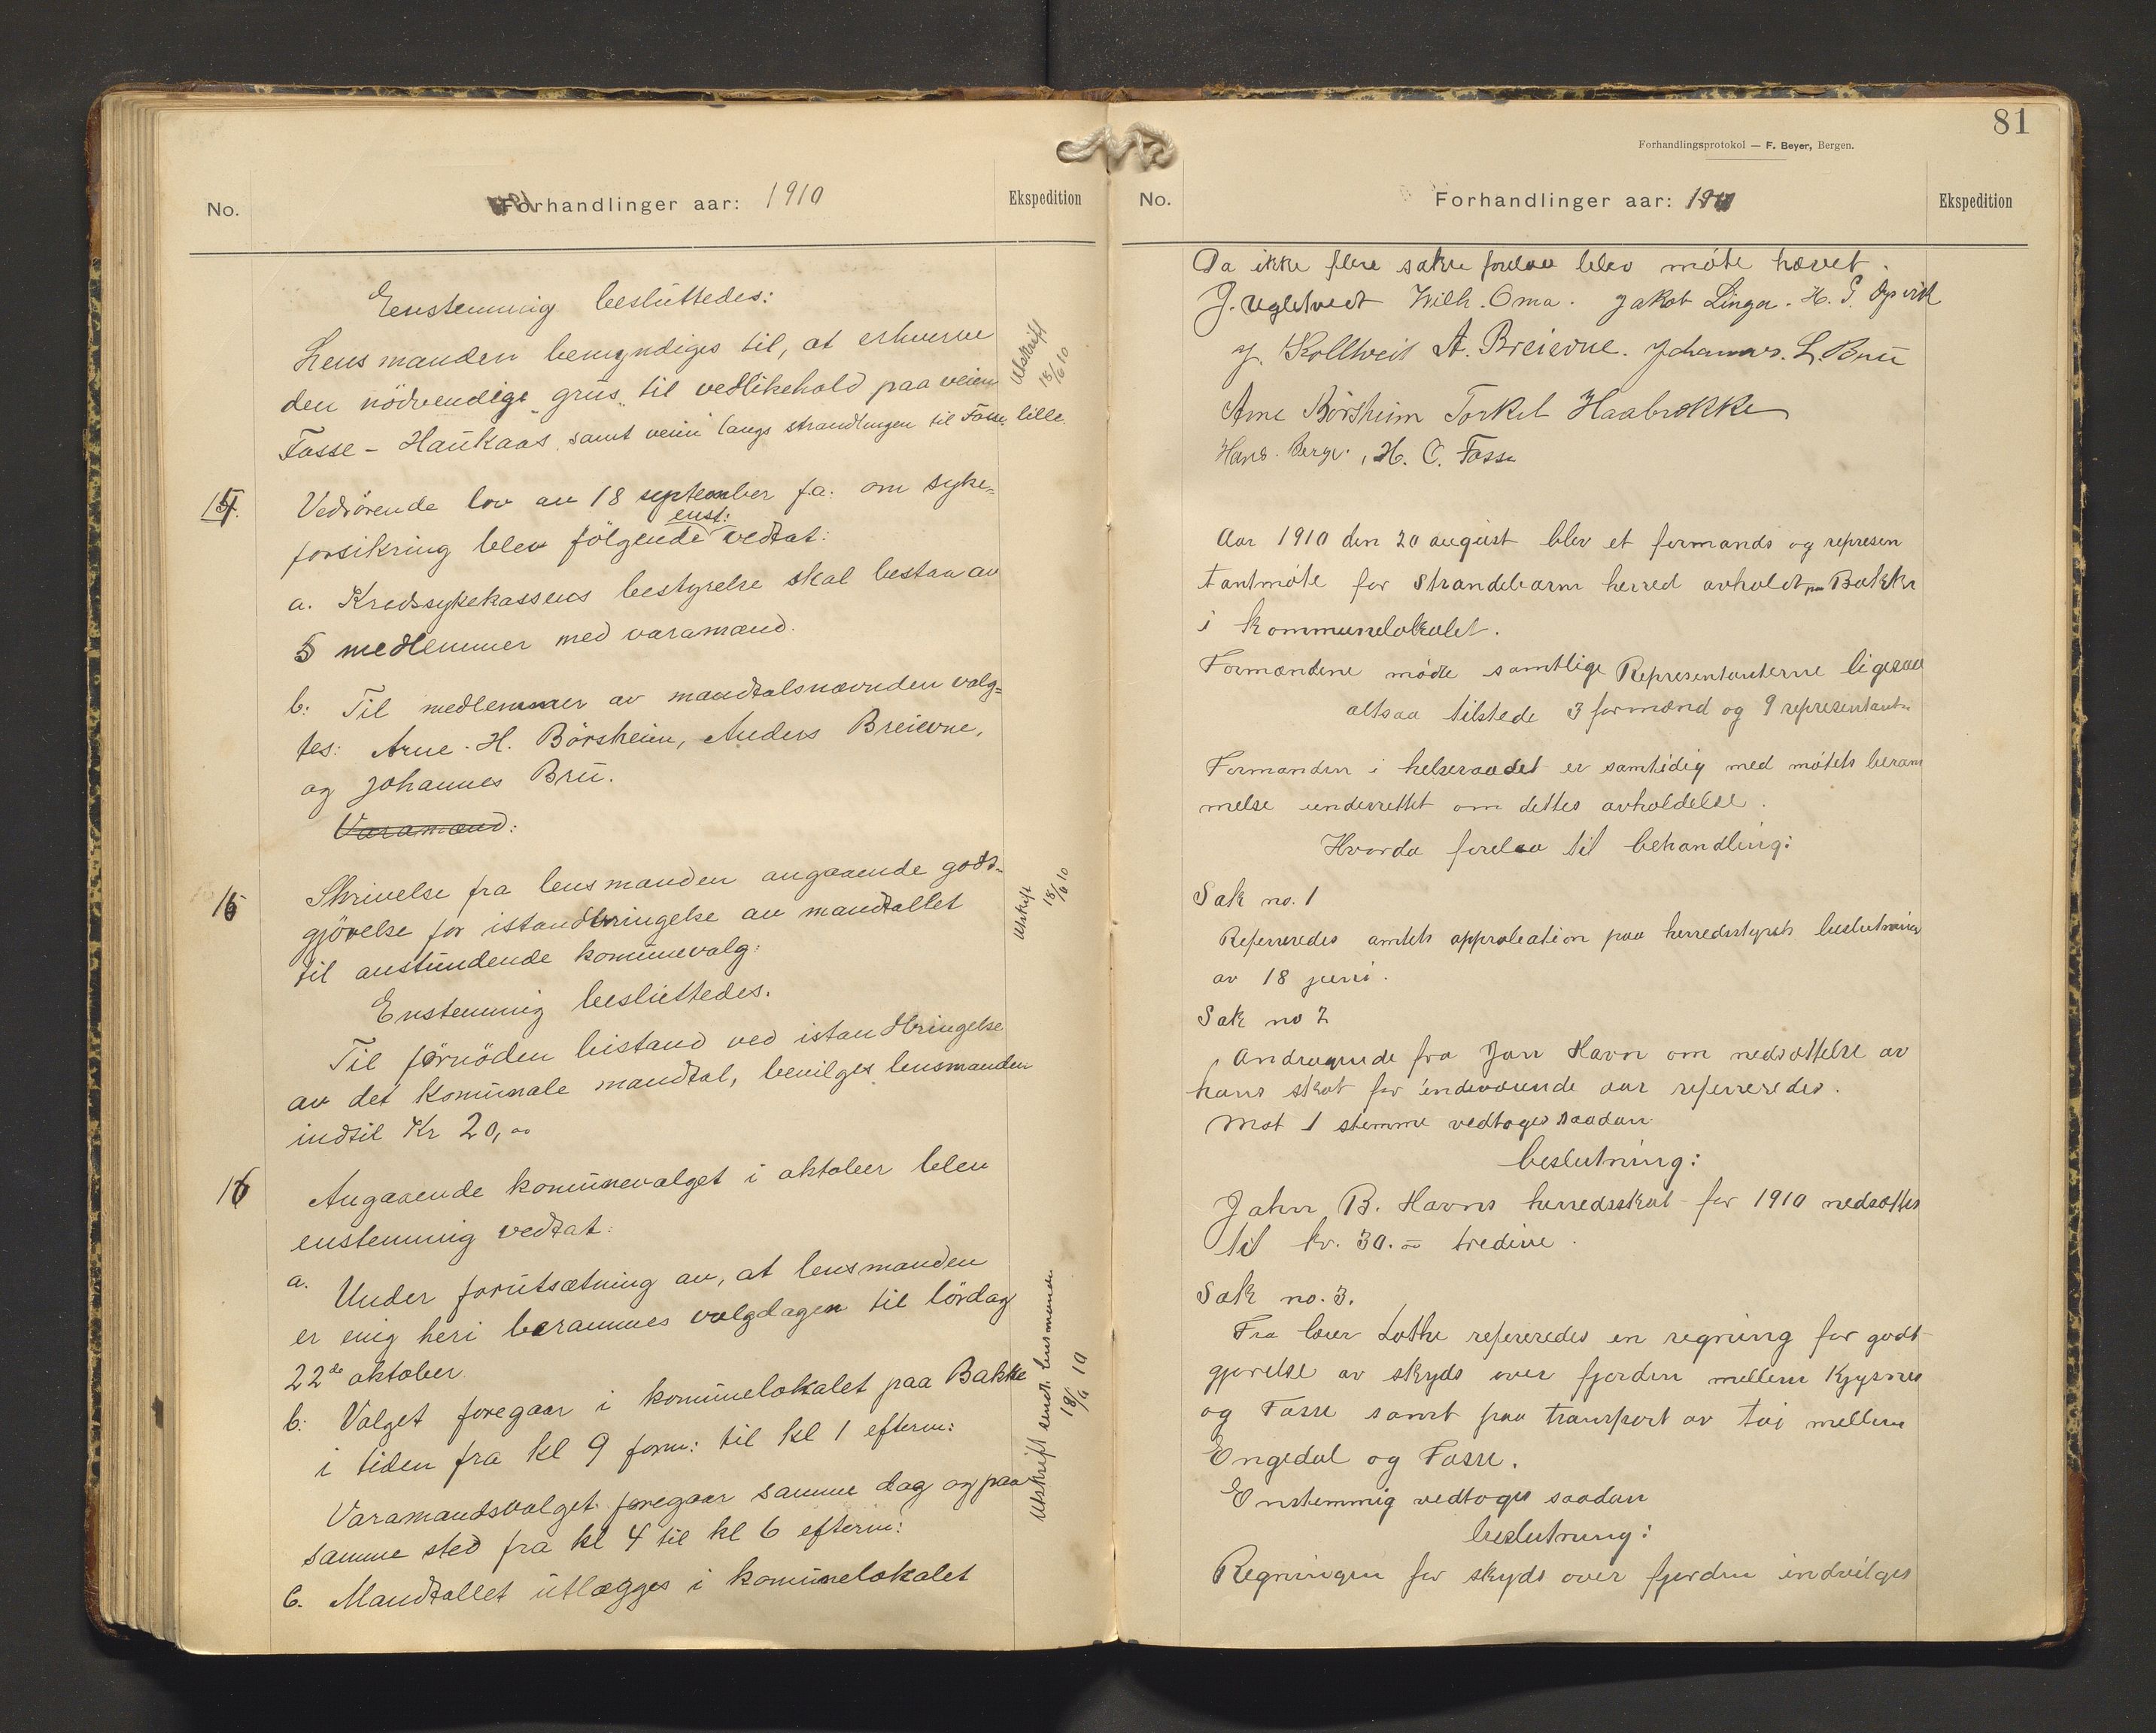 No.
Forhandlinger aar: 1910
Ekspedition
Enstemmig besluttedes:
Lensmanden bemyndiges til, at erhverve
den nödvendige grus til vedlikehold paa veien
Fosse - Haukaas samt veien langs strandlingen til Fosse lille.
Utskrift 18/6 10
Vedrörende lov av 18 september f.a. om syke=
forsikring blev fölgende enst: vedtat:
a. Kredssykekassens bestyrelse skal bestaa av
5 medlemmer med varamænd.
b: Til medlemmer av mandtalsnævnden valg=
tes: Arne H. Börsheim, Anders Breievne,
og Johannes Bru.
Varamænd:
15
Skrivelse fra lensmanden angaaende godt=
gjörelse for istandbringelse av mandtallet
til anstundende komunevalg:
Utskrift 18/6 10
Enstemmig besluttedes.
Til förnöden bistand ved istandbringelse
av det komunale mandtal, bevilges lensmanden
indtil Kr 20,00
16
Angaaende komunevalget i oktober blev
enstemmig vedtat:
a. Under forutsætning av, at lensmanden
er enig heri berammes valgdagen til lördag
22de oktober.
b: Valget foregaar i komunelokalet paa Bakke
i tiden fra kl 9 form: til kl 1 efterm:
Varamandsvalget foregaar samme dag og paa
samme sted fra kl 4 til kl 6 efterm:
c. Mandtallet utlægges i komunelokalet
Utskrift sendt lensmanden 18/6 10
81
Forhandlingsprotokol — F. Beyer, Bergen.
No.
Forhandlinger aar: 1910
Ekspedition
Da ikke flere saker forelaa blev möte hævet.
J. Ugletveit Wilh. Oma. Jakob Linga. H. G.
J. Kolltveit A. Breievne. Johannes L. Bru
Arne Börsheim Torkel Haabrekke
Hans Berge, H. O. Fosse
Aar 1910 den 20 august blev et formands og represen
tantmöte for Strandebarm herred avholdt paa Bakke
i kommunelokalet.
Formændene mödte samtlige Representanterne ligesaa
altsaa tilstede 3 formænd og 9 representanter
Formanden i helseraadet er samtidig med mötets beram
melse underrettet om dettes avholdelse.
Hvorda forelaa til behandling:
Sak no. 1
Refereredes amtets approbation paa herredsstyrets beslutninger
av 18 juni.
Sak no 2
Andragende fra Jan Havn om nedsættelse av
hans skat for indeværende aar refereredes.
Mot 1 stemme vedtoges saadan
beslutning:
Jahn B. Havns herredsskat for 1910 nedsættes
til kr. 30.00 tredive.
Sak no. 3.
Fra lærer Lothe refereredes en regning for godt
gjörelse av skyds over fjorden mellem Kysnes
og Fosse samt paa transport av töi mellem
Engedal og Fosse.
Enstemmig vedtoges saadan
beslutning:
Regningen for skyds over fjorden indvilges